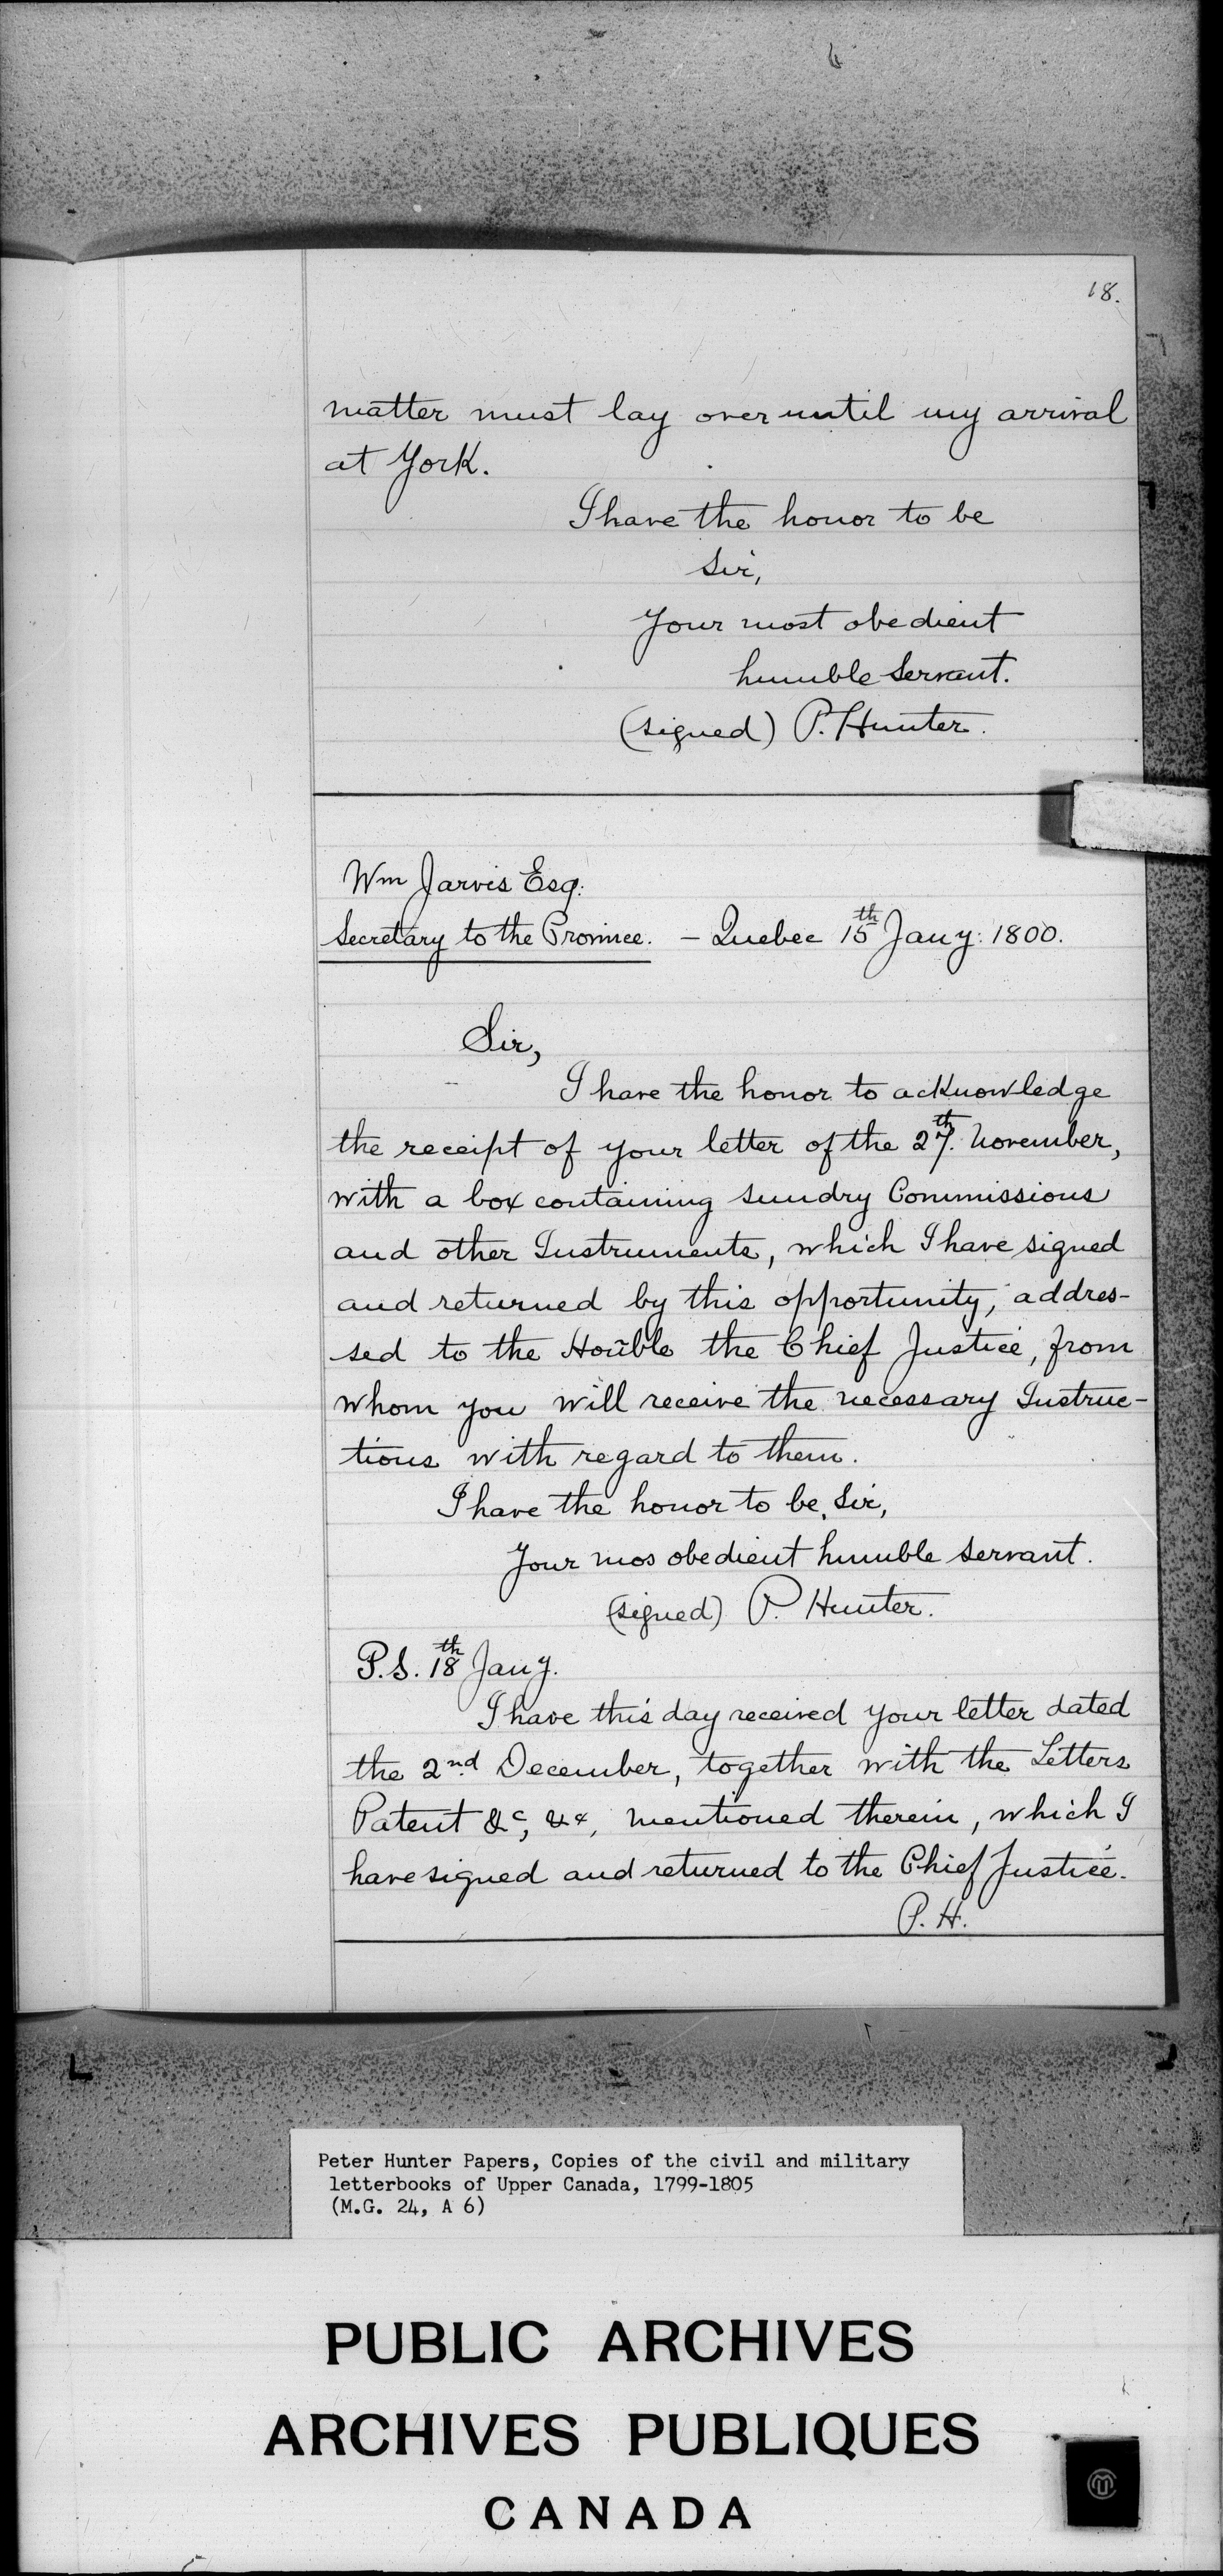 18.
matter must lay over until my arrival
at York.
I have the honor to be
Sir,
Your most obedient
humble Servant.
(signed) P. Hunter.
Wm Jarvis Esq:
Secretary to the Province. – Quebec 15th Jany: 1800.
Sir,
I have the honor to acknowledge
the receipt of your letter of the 27th November,
with a box containing sundry Commissions
and other Instruments, which I have signed
and returned by this opportunity, addres-
sed to the Hoñble the Chief Justice, from
whom you will receive the necessary Instruc-
tions with regard to them.
I have the honor to be, Sir,
Your mos obedient humble servant.
(signed) P. Hunter.
P.S. 18th Jany.
I have this day received your letter dated
the 2nd December, together with the Letters
Patent &c, &c, mentioned therein, which I
have signed and returned to the Chief Justice.
P. H.
Peter Hunter Papers, Copies of the civil and military
letterbooks of Upper Canada, 1799-1805
(M.G. 24, A 6)
PUBLIC ARCHIVES
ARCHIVES PUBLIQUES
CANADA